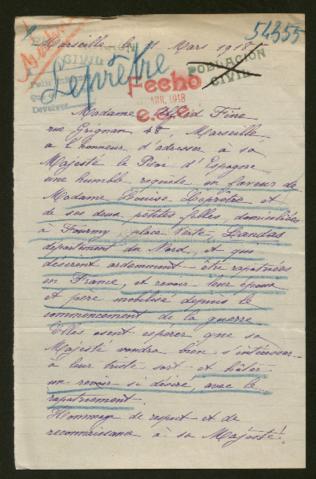 54355
Marseille le 11 Mars 1918
POBLACION
CIVIL
Leprêtre
Fecho
ABR. 1918
Madame Alfred Fine
rue Grignan 48, Marseille
a l'honneur d'adresser à sa
Majesté le Roi d'Espagne
une humble requête en faveur de
Madame Leprêtre et
de ses deux petites filles, domiciliées
à Fourmy, place Verte, Landas
département du Nord, et qui
désirent ardemment être rapatriées
en France, et revoir leur époux
et père mobilisé depuis le
commencement de la guerre
Elles osent espérer que sa
Majesté voudra bien s'intéresser
à leur triste sort et hâter
un revoir si désiré, avec le
rapatriement.
Hommage de respect et de
reconnaissance à sa Majesté.